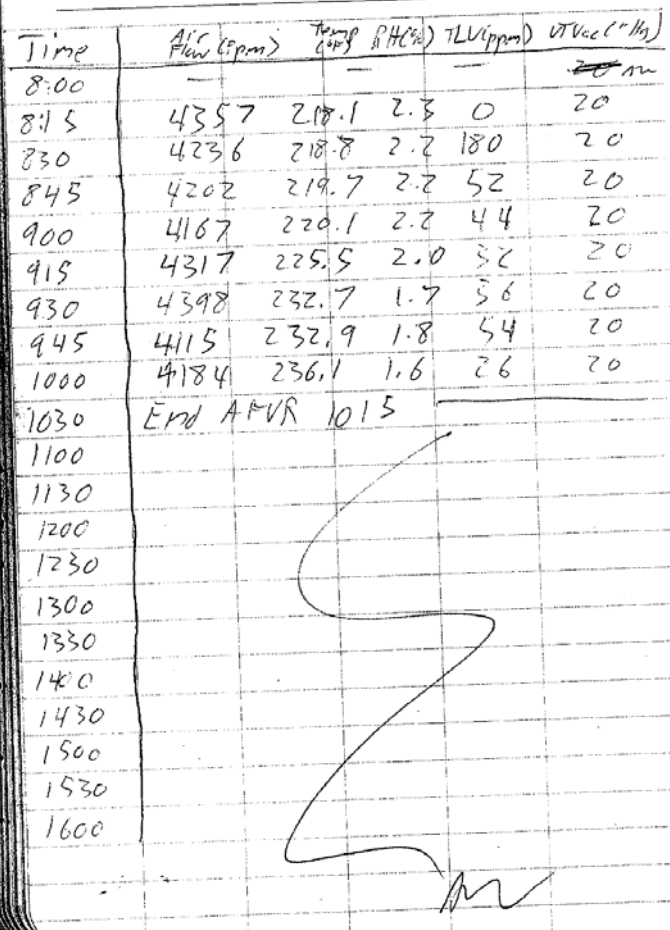 Time Air Flow (fpm) Temp (°F) RH(%) TLV(ppm) VT Vac ("Hg)
8:00 — — — 20
8:15 4357 218.1 2.3 0 20
830 4236 218.8 2.2 180 20
845 4202 219.7 2.2 52 20
900 4167 220.1 2.2 44 20
915 4317 225.5 2.0 32 20
930 4398 232.7 1.7 36 20
945 4115 232.9 1.8 54 20
1000 4184 236.1 1.6 26 20
1030 End AFVR 1015
1100
1130
1200
1230
1300
1330
1400
1430
1500
1530
1600